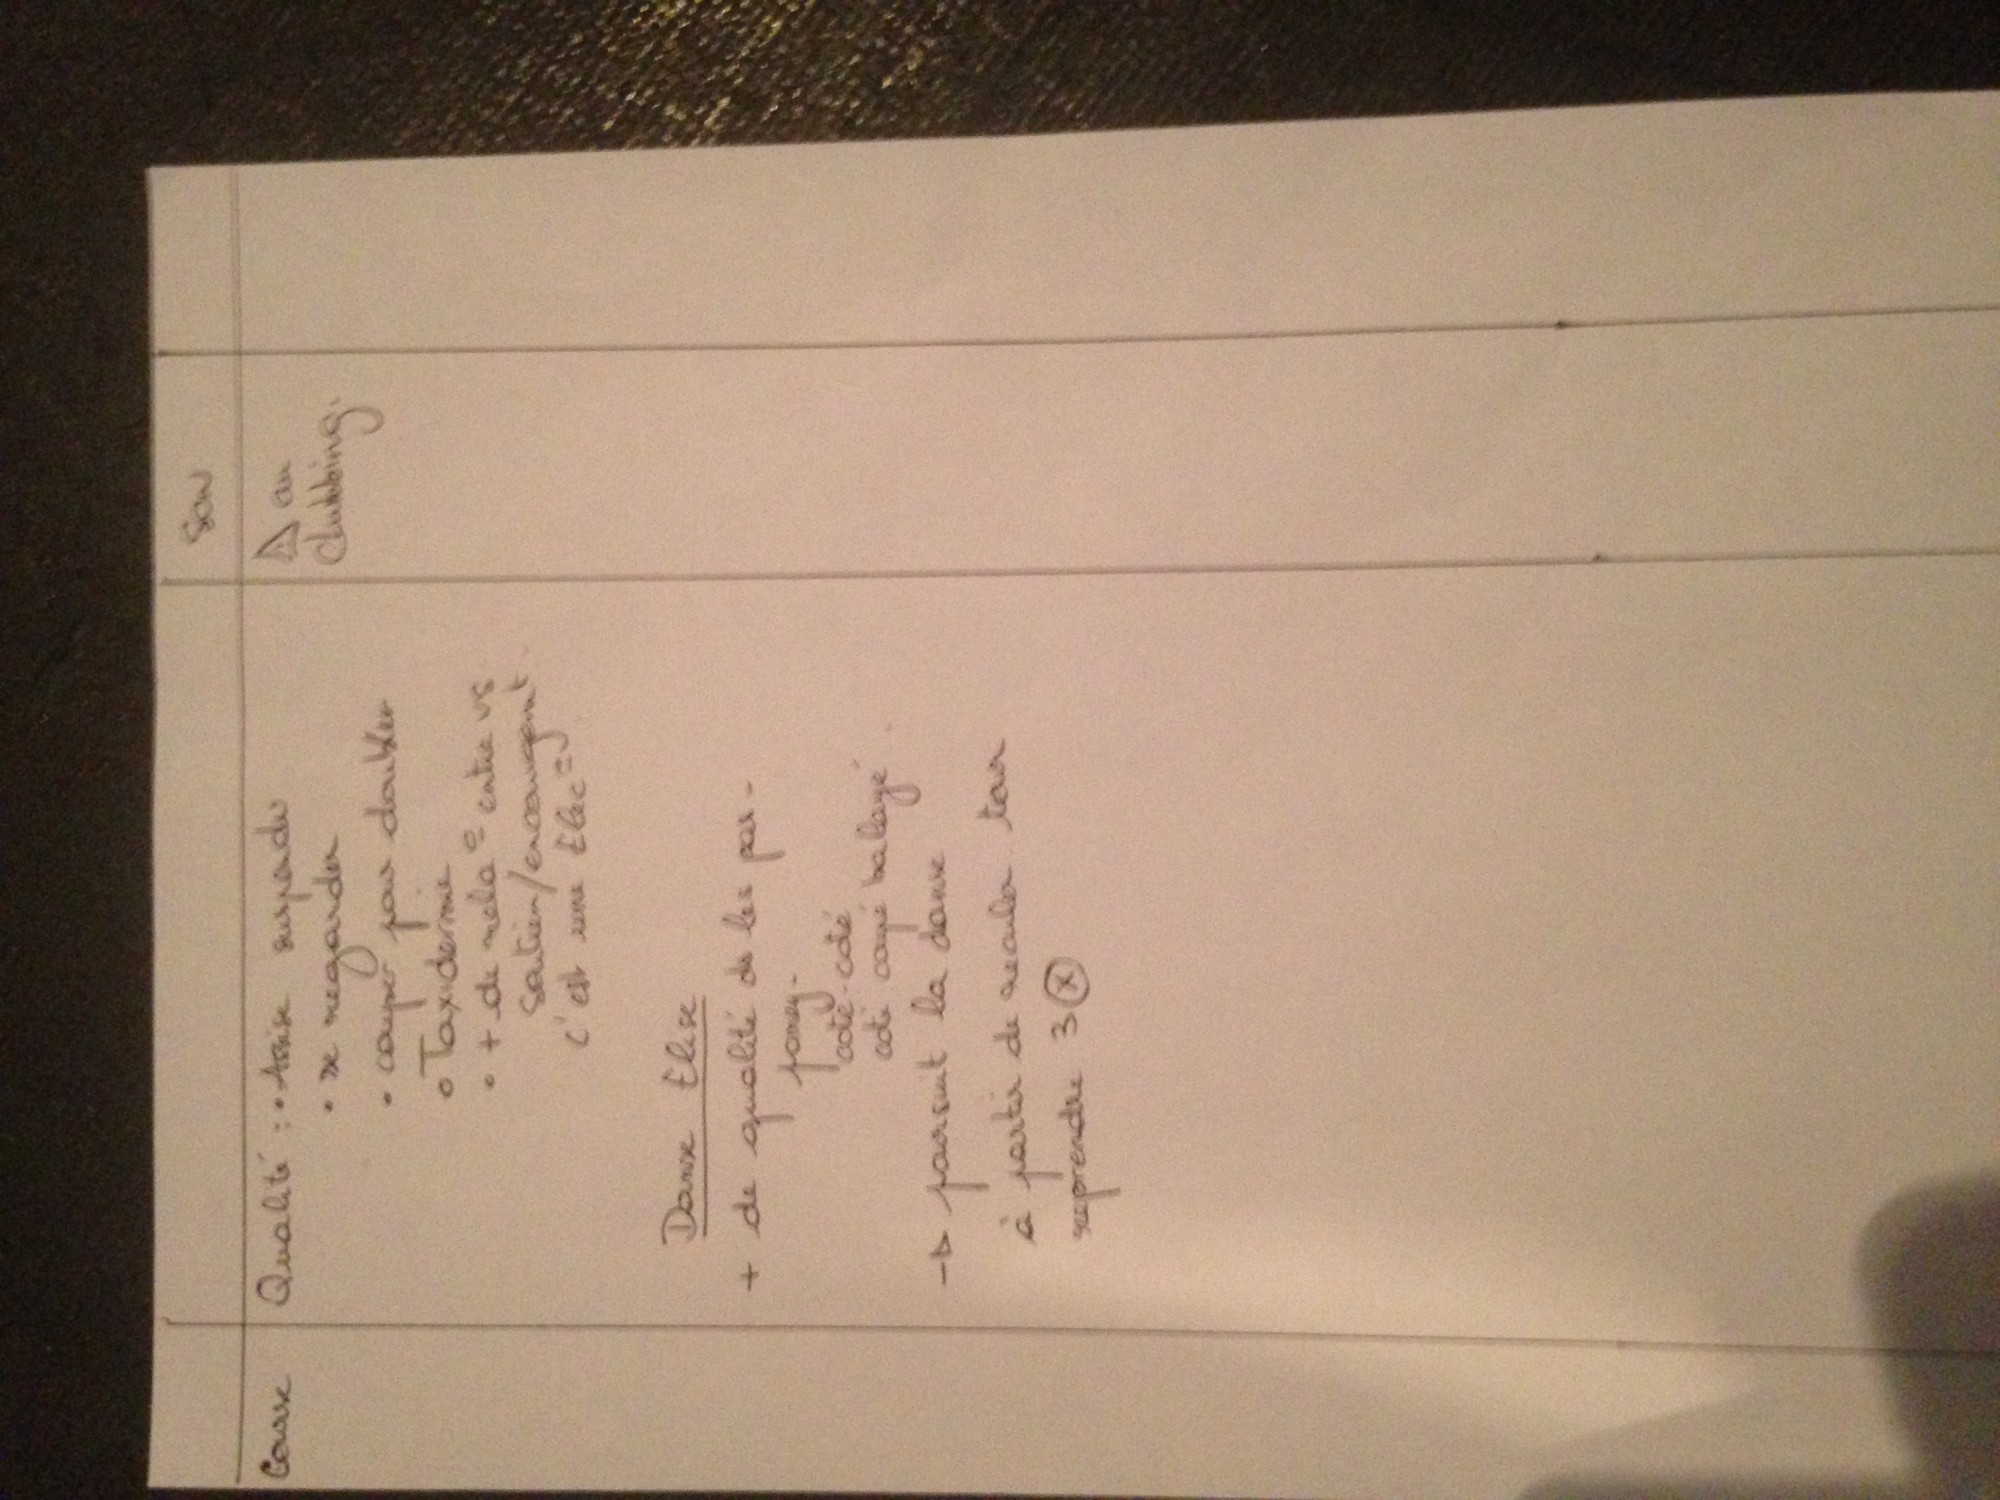 Son
Course
Qualité : • Assise suspendu
• se regarder
• couper pour doubler
• Taxidermie
• + de rela° entre vs
Soutien/encouragmt.
c'est une Elec°
Danse Elise
+ de qualité ds les pas -
poney -
coté - coté
coté coupé balayé.
→ poursuit la danse
à partir de reculer tour
reprendre 3 ⓧ
⚠ au
clubbing.